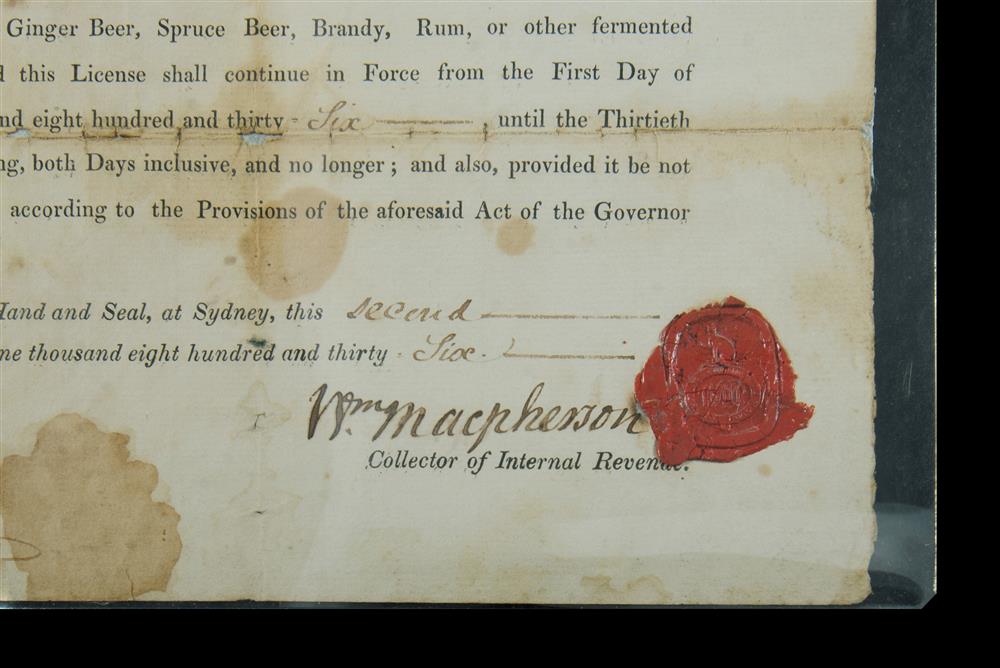 Ginger Beer, Spruce Beer, Brandy, Rum, or other fermented
this License shall continue in Force from the First Day of
eight hundred and thirty - Six , until the Thirtieth
both Days inclusive, and no longer ; and also, provided it be not
according to the Provisions of the aforesaid Act of the Governor
Hand and Seal, at Sydney, this second
thousand eight hundred and thirty - Six.
Wm. Macpherson
Collector of Internal Revenue.